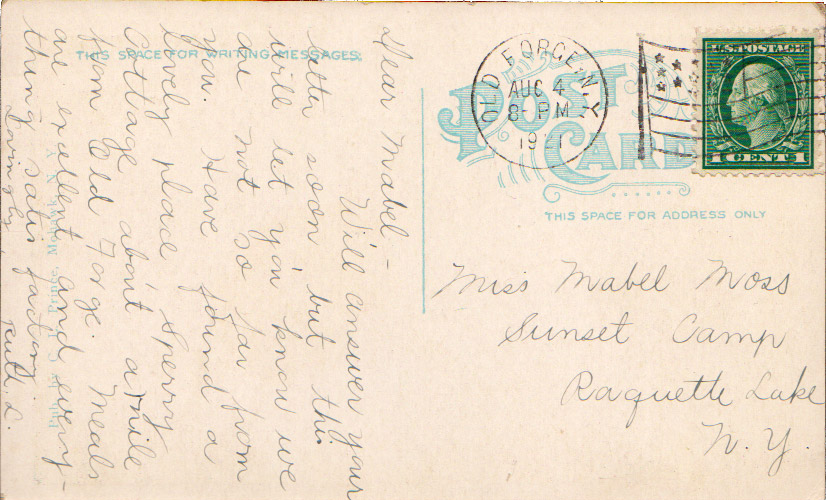 THIS SPACE FOR WRITING MESSAGES
Dear Mabel -
Will answer your
letter soon but this
will let you know we
are not so far from
you. Have found a
lovely place Sperry
Cottage about a mile
from Old Forge. Meals
are excellent and every-
thing satisfactory.
Lovingly,
Ruth L.
Pub. by C. D. Prince, Mohawk, N. Y.
POST CARD
OLD FORGE, N.Y.
AUG 4
8- PM
U.S. POSTAGE
1 CENT 1
THIS SPACE FOR ADDRESS ONLY
Miss Mabel Moss
Sunset Camp
Raquette Lake
N. Y.